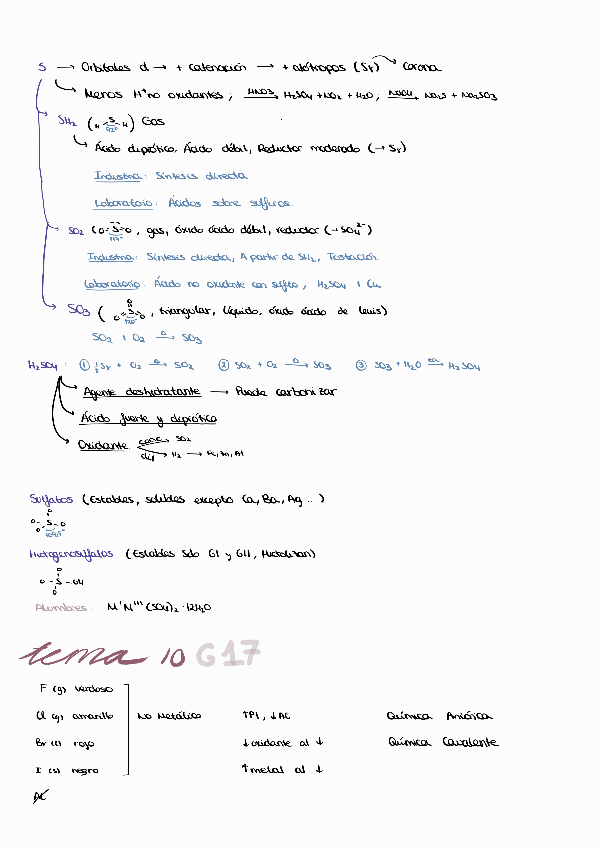 S → Orbitales d → + catenación → + alótropos (S8) → Corona
Menos H+ no oxidantes ; HNO3 → H2SO4 + NO2 + H2O ; NaOH → Na2S + Na2SO3
SH2 (H-S-H 92°) Gas
Ácido diprótico, Ácido débil, Reductor moderado (→ S8)
Industria: Síntesis directa
Laboratorio: Ácidos sobre sulfuros.
SO2 (O=S=O 119°, gas, óxido ácido débil, reductor (→ SO4 2-)
Industria: Síntesis directa, A partir de SH2, Tostación.
Laboratorio: Ácido no oxidante con sulfito, H2SO4 + Cu
SO3 (O S O O 120°, triangular, líquido, óxido ácido de lewis)
SO2 + O2 Δ→ SO3
H2SO4: ① 1/8 S8 + O2 Δ→ SO2 ② SO2 + O2 Δ→ SO3 ③ SO3 + H2O → H2SO4
Agente deshidratante → Puede carbonizar
Ácido fuerte y diprótico
Oxidante conc → SO2
dil → H2 → Fe, Zn, Al
Sulfatos (Estables, solubles excepto Ca, Ba, Ag ..)
O
O-S-O
O
109.5°
Hidrogenosulfatos (Estables Sdo GI y GII, Hidrolizan)
O
O-S-OH
O
Alumbres: M'M'''(SO4)2 · 12H2O
tema 10 G17
F (g) verdoso
Cl (g) amarillo No Metálico ↑PI, ↓AE Química Aniónica
Br (l) rojo ↓oxidante al ↓ Química Covalente
I (s) negro ↑metal al ↓